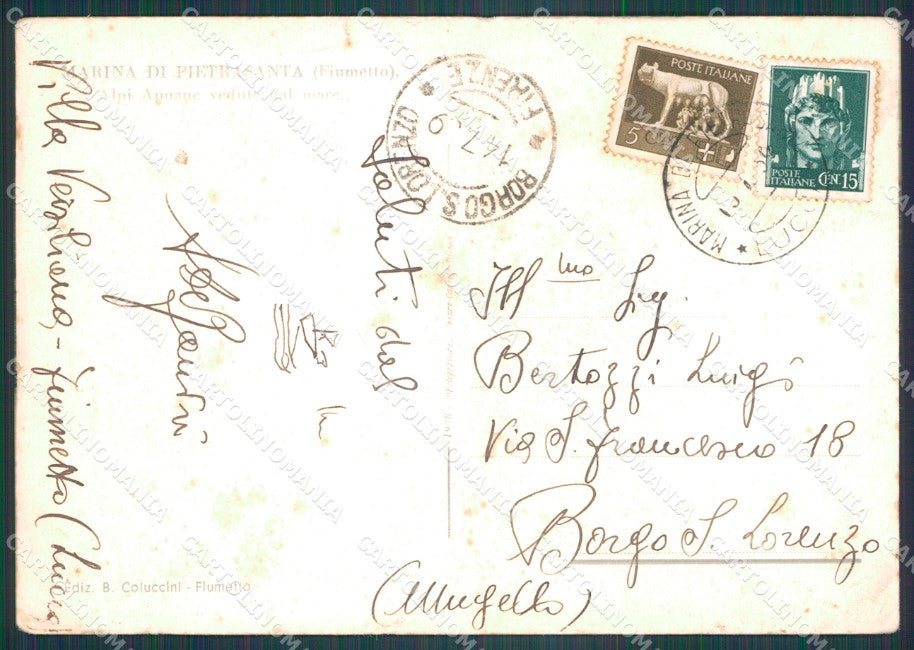 MARINA DI PIETRASANTA (Fiumetto).
Alpi Apuane vedute dal mare.
Villa Versiliana - Fiumetto (Lucca
Saluti dal
BORGO S. LORENZO
FIRENZE
14 7
POSTE ITALIANE
5
POSTE ITALIANE
CEN. 15
MARINA
LUCCA
Ill mo Sig.
Bertozzi Luigi
Via S. Francesco 18
Borgo S. Lorenzo
(Mugello)
Ediz. B. Coluccini - Fiumetto
CARTOLINOMANIA